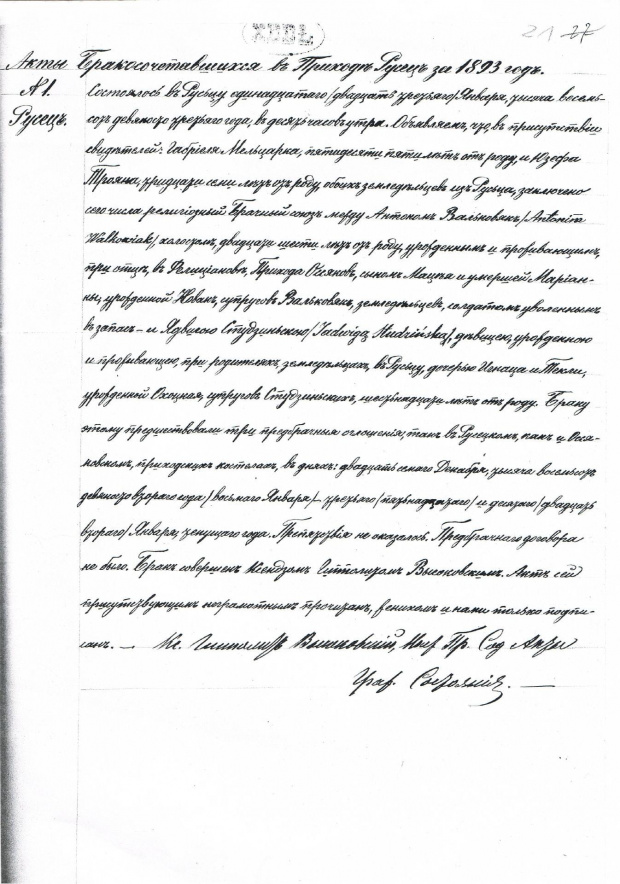 21 27
Акты Бракосочетавшихся въ Приходѣ Русецъ за 1893 годъ.
N 1.
Русецъ.
Состоялось въ Русьцу одинадцатаго /двадцать третьяго/ Января, тысяча восемь-
сотъ девяносто третьяго года, въ десять часовъ утра. Объявляемъ, что, въ присутствіи
свидѣтелей: Габріеля Мельцарка, пятидесяти пяти лѣтъ отъ роду, и Юзефа
Трояна, тридцати семи лѣтъ отъ роду, обоихъ земледѣльцевъ изъ Русьца, заключено
сего числа религіозный брачный союзъ между Антономъ Вальковякъ /Antonim
Walkowiak/, холостомъ, двадцати шести лѣтъ отъ роду, урожденнымъ и проживающимъ,
при отцѣ, въ Фелиціановѣ, Прихода Осяковъ, сыномъ Мацея и умершей Маріан-
ны, урожденной Новакъ, супруговъ Вальковякъ, земледѣльцевъ, солдатомъ уволеннымъ
въ запасъ – и Ядвигою Студзинскою /Jadwigą Studzińską/, дѣвицею, урожденною
и проживающею, при родителяхъ, земледѣльцахъ, въ Русьцу, дочерью Игнаца и Текли,
урожденной Охоцкая, супруговъ Студзинскихъ, шестьнадцати лѣтъ отъ роду. Браку
этому предшествовали три предбрачныя оглашенія, такъ въ Русецкомъ, какъ и Ося-
ковскомъ, приходскихъ костелахъ, въ дняхъ: двадцать седьмаго Декабря, тысяча восемьсотъ
девяносто втораго года /восьмаго Января/ – третьяго /пятьнадцатаго/ и десятаго /двадцать
втораго/ Января, текущаго года. Препятствія не оказалось. Предбрачнаго договора
не было. Бракъ совершенъ Ксендзомъ Ипполитомъ Высоковскимъ. Актъ сей
присутствующимъ неграмотнымъ прочитанъ, женихомъ и нами только подпи-
санъ. —
Кс. Ипполитъ
Пр. Сод. Акты
Граж. Состоянія. —